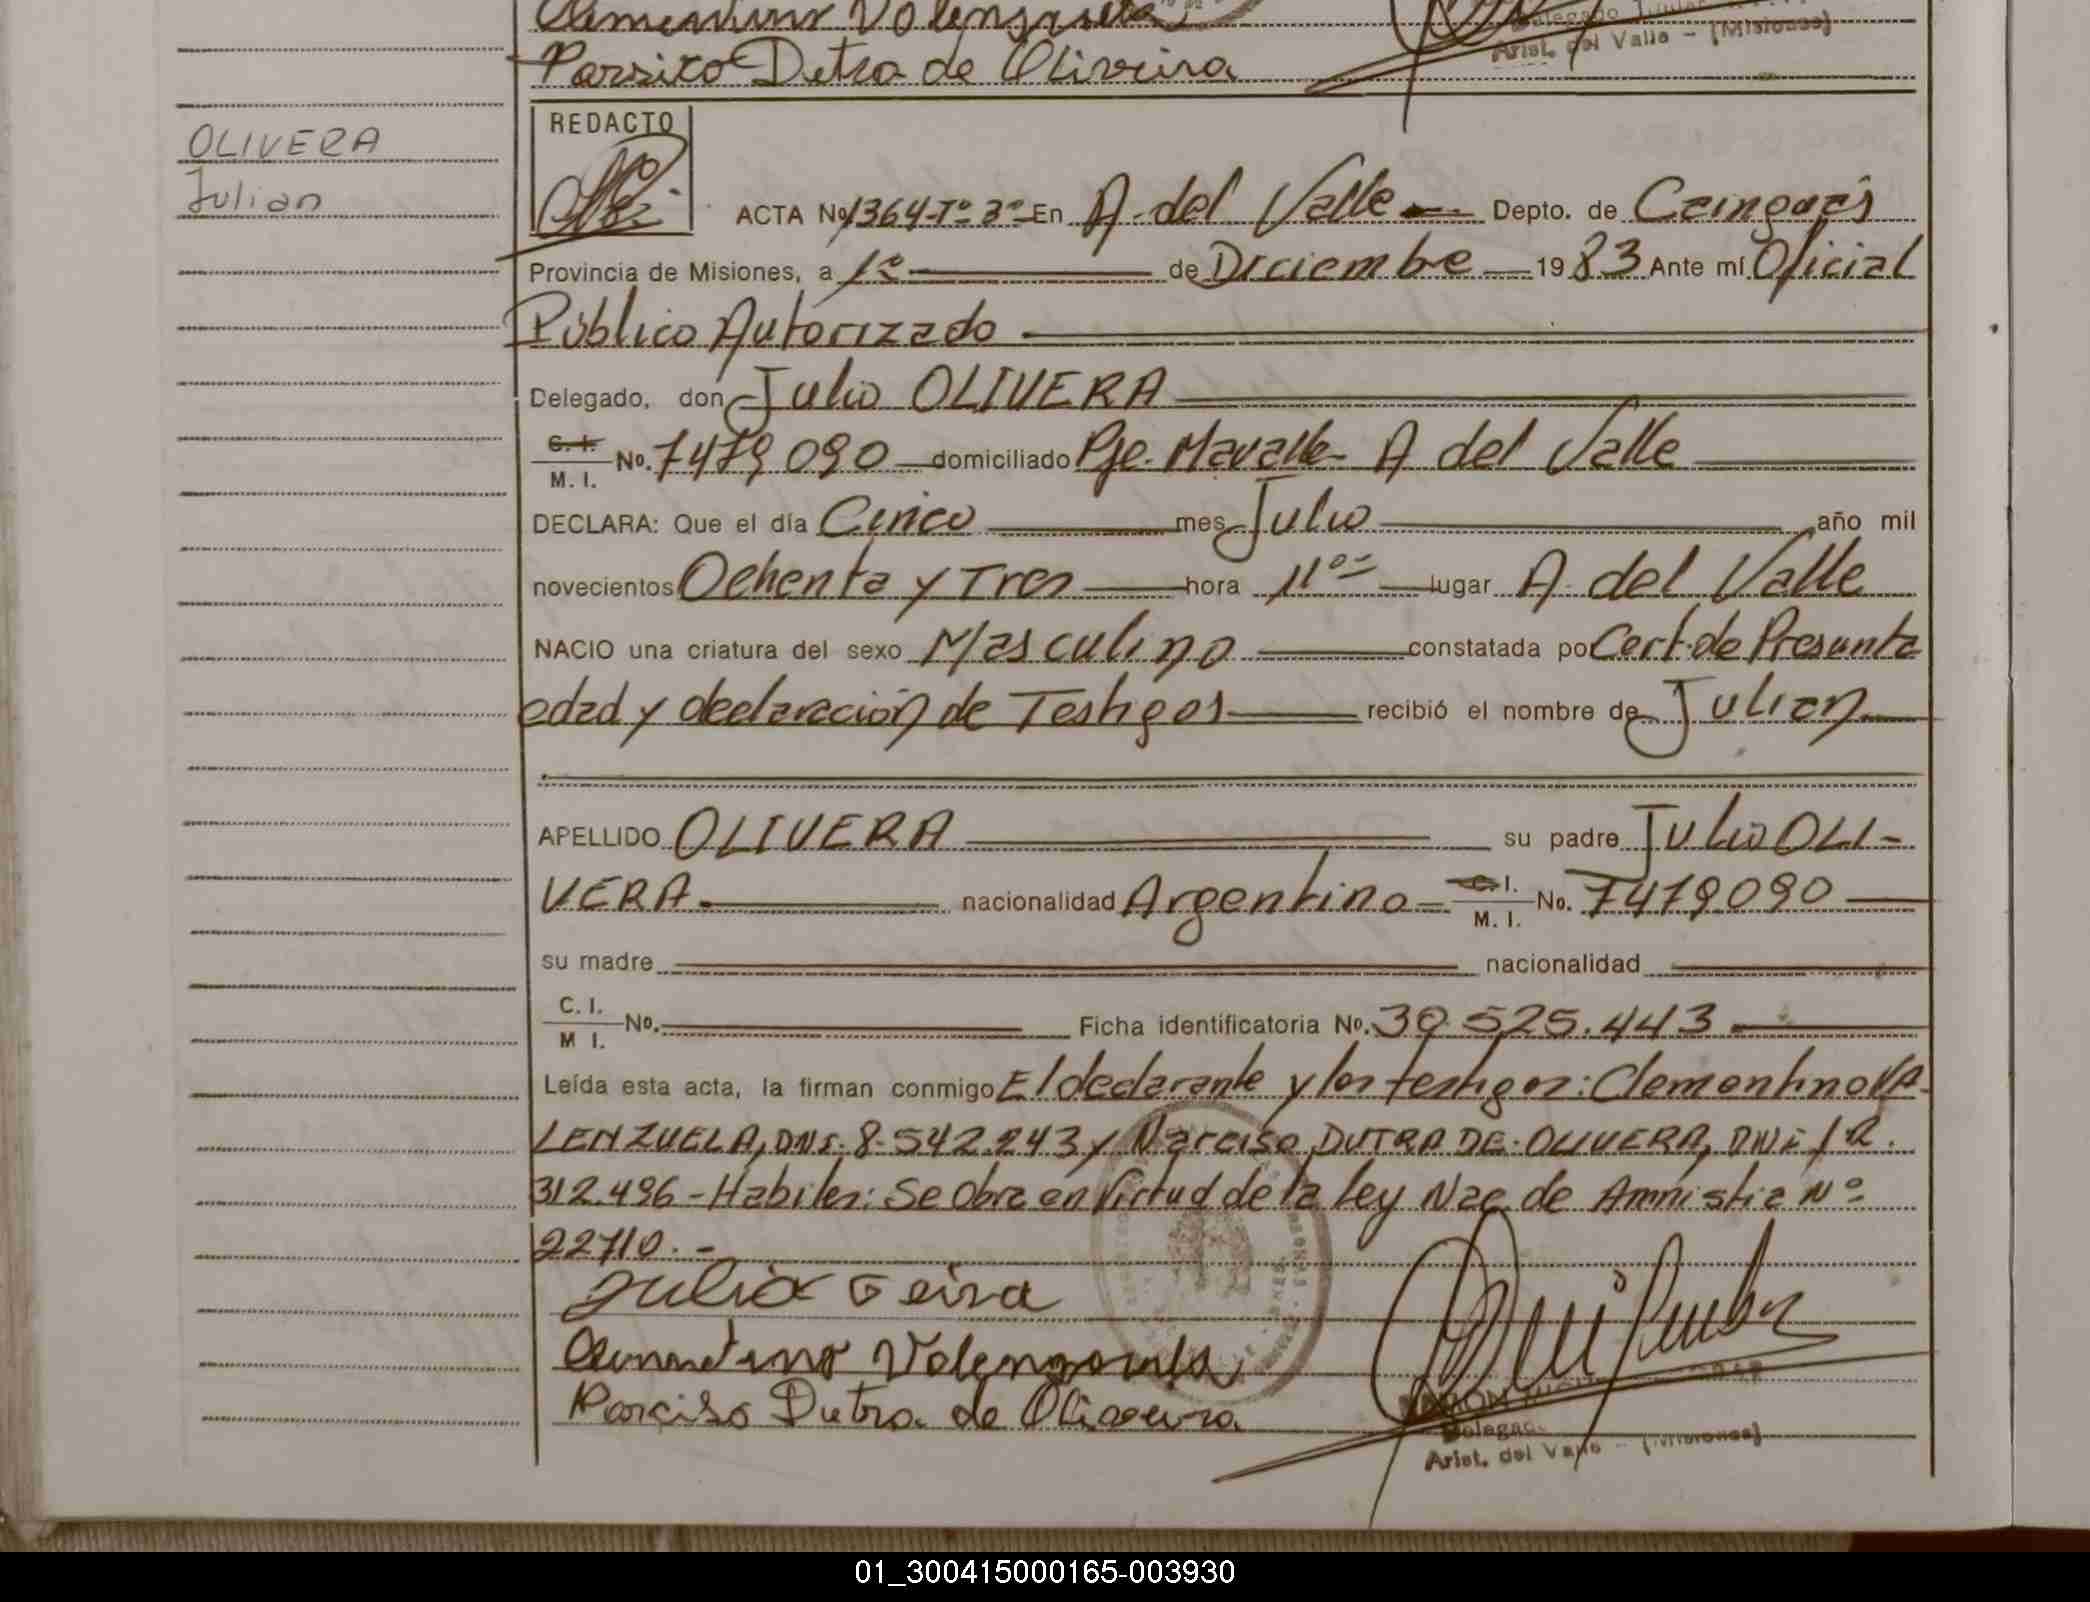 Clementino Valenzuela
Delegado Titular
Arist. del Valle - (Misiones)
Parsiso Detra de Oliveira
OLIVERA
Julian
REDACTO
ACTA Nº 1364-Tº 3º- En A. del Valle Depto. de Cainguas
Provincia de Misiones, a 1º de Diciembe 19 83 Ante mí Oficial
Público Autorizado
Delegado, don Julio OLIVERA
C. I.
M. I. No. 7479090 domiciliado Pje. Mavalle- A del Valle
DECLARA: Que el día Cinco mes Julio año mil
novecientos Ochenta y Tres hora 11ºº lugar A. del Valle
NACIO una criatura del sexo Masculino constatada po Cert. de Presunta
edad y declaración de Testigos recibió el nombre de Julian
APELLIDO OLIVERA su padre Julio OLI-
VERA. nacionalidad Argentino C. I.
M. I. No. 7479090
su madre nacionalidad
C. I.
M I. No. Ficha identificatoria No. 30.525.443
Leída esta acta, la firman conmigo El declarante y los testigos: Clementino VA-
LENZUELA, DNI. 8.542.243 y Narciso DUTRA DE OLIVERA, DNI 12.
312.496 - Habiles: Se Obra en Virtud de la ley Nac. de Amnistia Nº
22710. -
Julio
Clementino Valenzuela
Parciso Dutra de Oliveira
Delegado
Arist. del Valle - (Misiones)
01_300415000165-003930